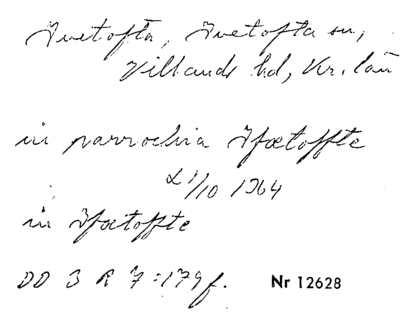 Ivetofta, Ivetofta sn,
Villands hd, Kr. län
in parrochia Ifœtoffte
1/10 1364
in Ifœtoffte
DD 3 R 7:179 f. Nr 12628